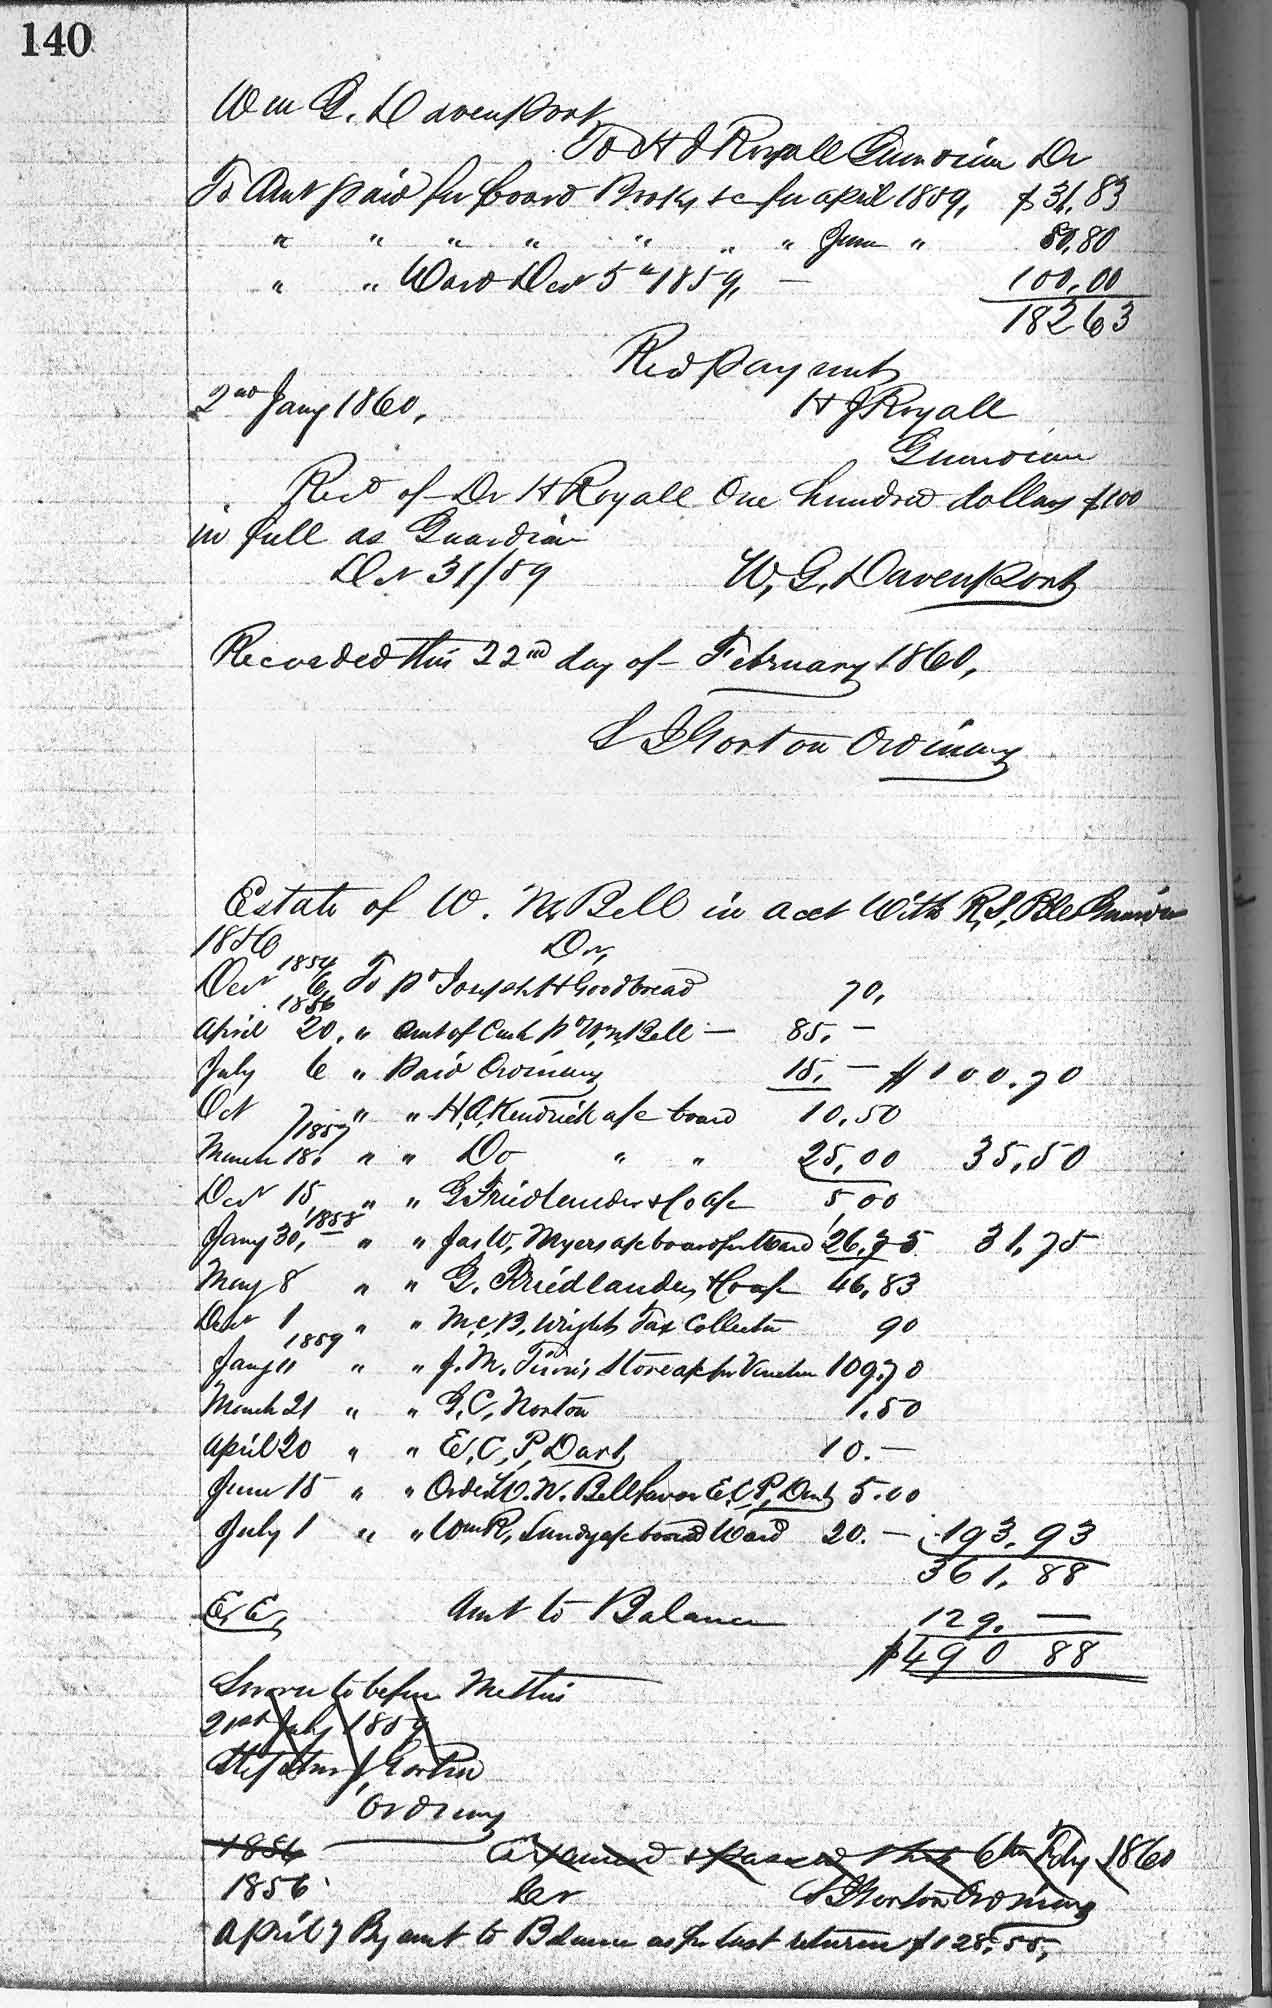 140
Wm G. Davenport
To H J Royall Guardian Dr
To Amt paid for board Books &c for april 1859, $31,83
" " " " " " " June " 50,80
" " Ward Decr 5th 1859, — 100,00
18263
Recd payment
2nd Jany 1860, H J Royall
Guardian
Recd of Dr H Royall One hundred dollars $100
in full as Guardian
Dec 31/59 W, G, Davenport
Recorded this 22nd day of February 1860,
S J Gorton Ordinary
Estate of W. N. Bell in acct With R, S, Bell Guardian
1856 Dr,
Decr 1854 6, To pd Joseph H Goodbread 70,
1856
April 20, " amt of Cash pd Wm, Bell — 85, —
July 6 " Paid Ordinary 15, — $100.70
Oct 7 " " H, A, Kendrick a/c board 10,50
1857
March 18, " " Do " " 25,00 35,50
Decr 15 " " G Friedlander & Co a/c 5,00
Jany 30, 1858 " " Jas W, Myers a/c board for Ward 26,75 31,75
May 8 " " G. Friedlander & Co a/c 46,83
Decr 1 " " Mc, B, Wright Tax Collector 90
1859
Jany 11 " " J. M. Store a/c for Voucher 109,70
March 21 " " G, C, Norton 1.50
April 20 " " E, C, P, Dart 10.—
June 15 " " Order W. N. Bell favor E, C, P, Dart 5.00
July 1 " " Wm R, a/c board Ward 20. — 193,93
361,88
E, E, Amt to Balance 129, —
$490 88
Sworn to before Me this
21st July 1859
Stephen J Gorton
Ordinary
1856 Examined & passed this 6th Feby 1860
1856 Cr S J Gorton Ordinary
April 7 By amt to Balance as per last return $128,55,